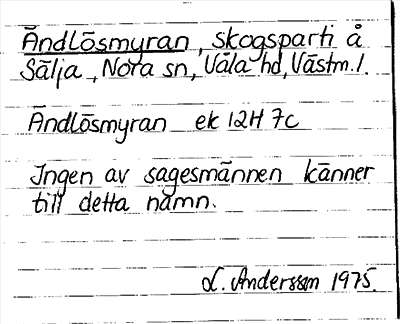 Ändlösmyran, skogsparti å
Sälja, Nora sn, Våla hd, Västm.l.
Ändlösmyran ek 12H 7c
Ingen av sagesmännen känner
till detta namn.
L. Andersson 1975.